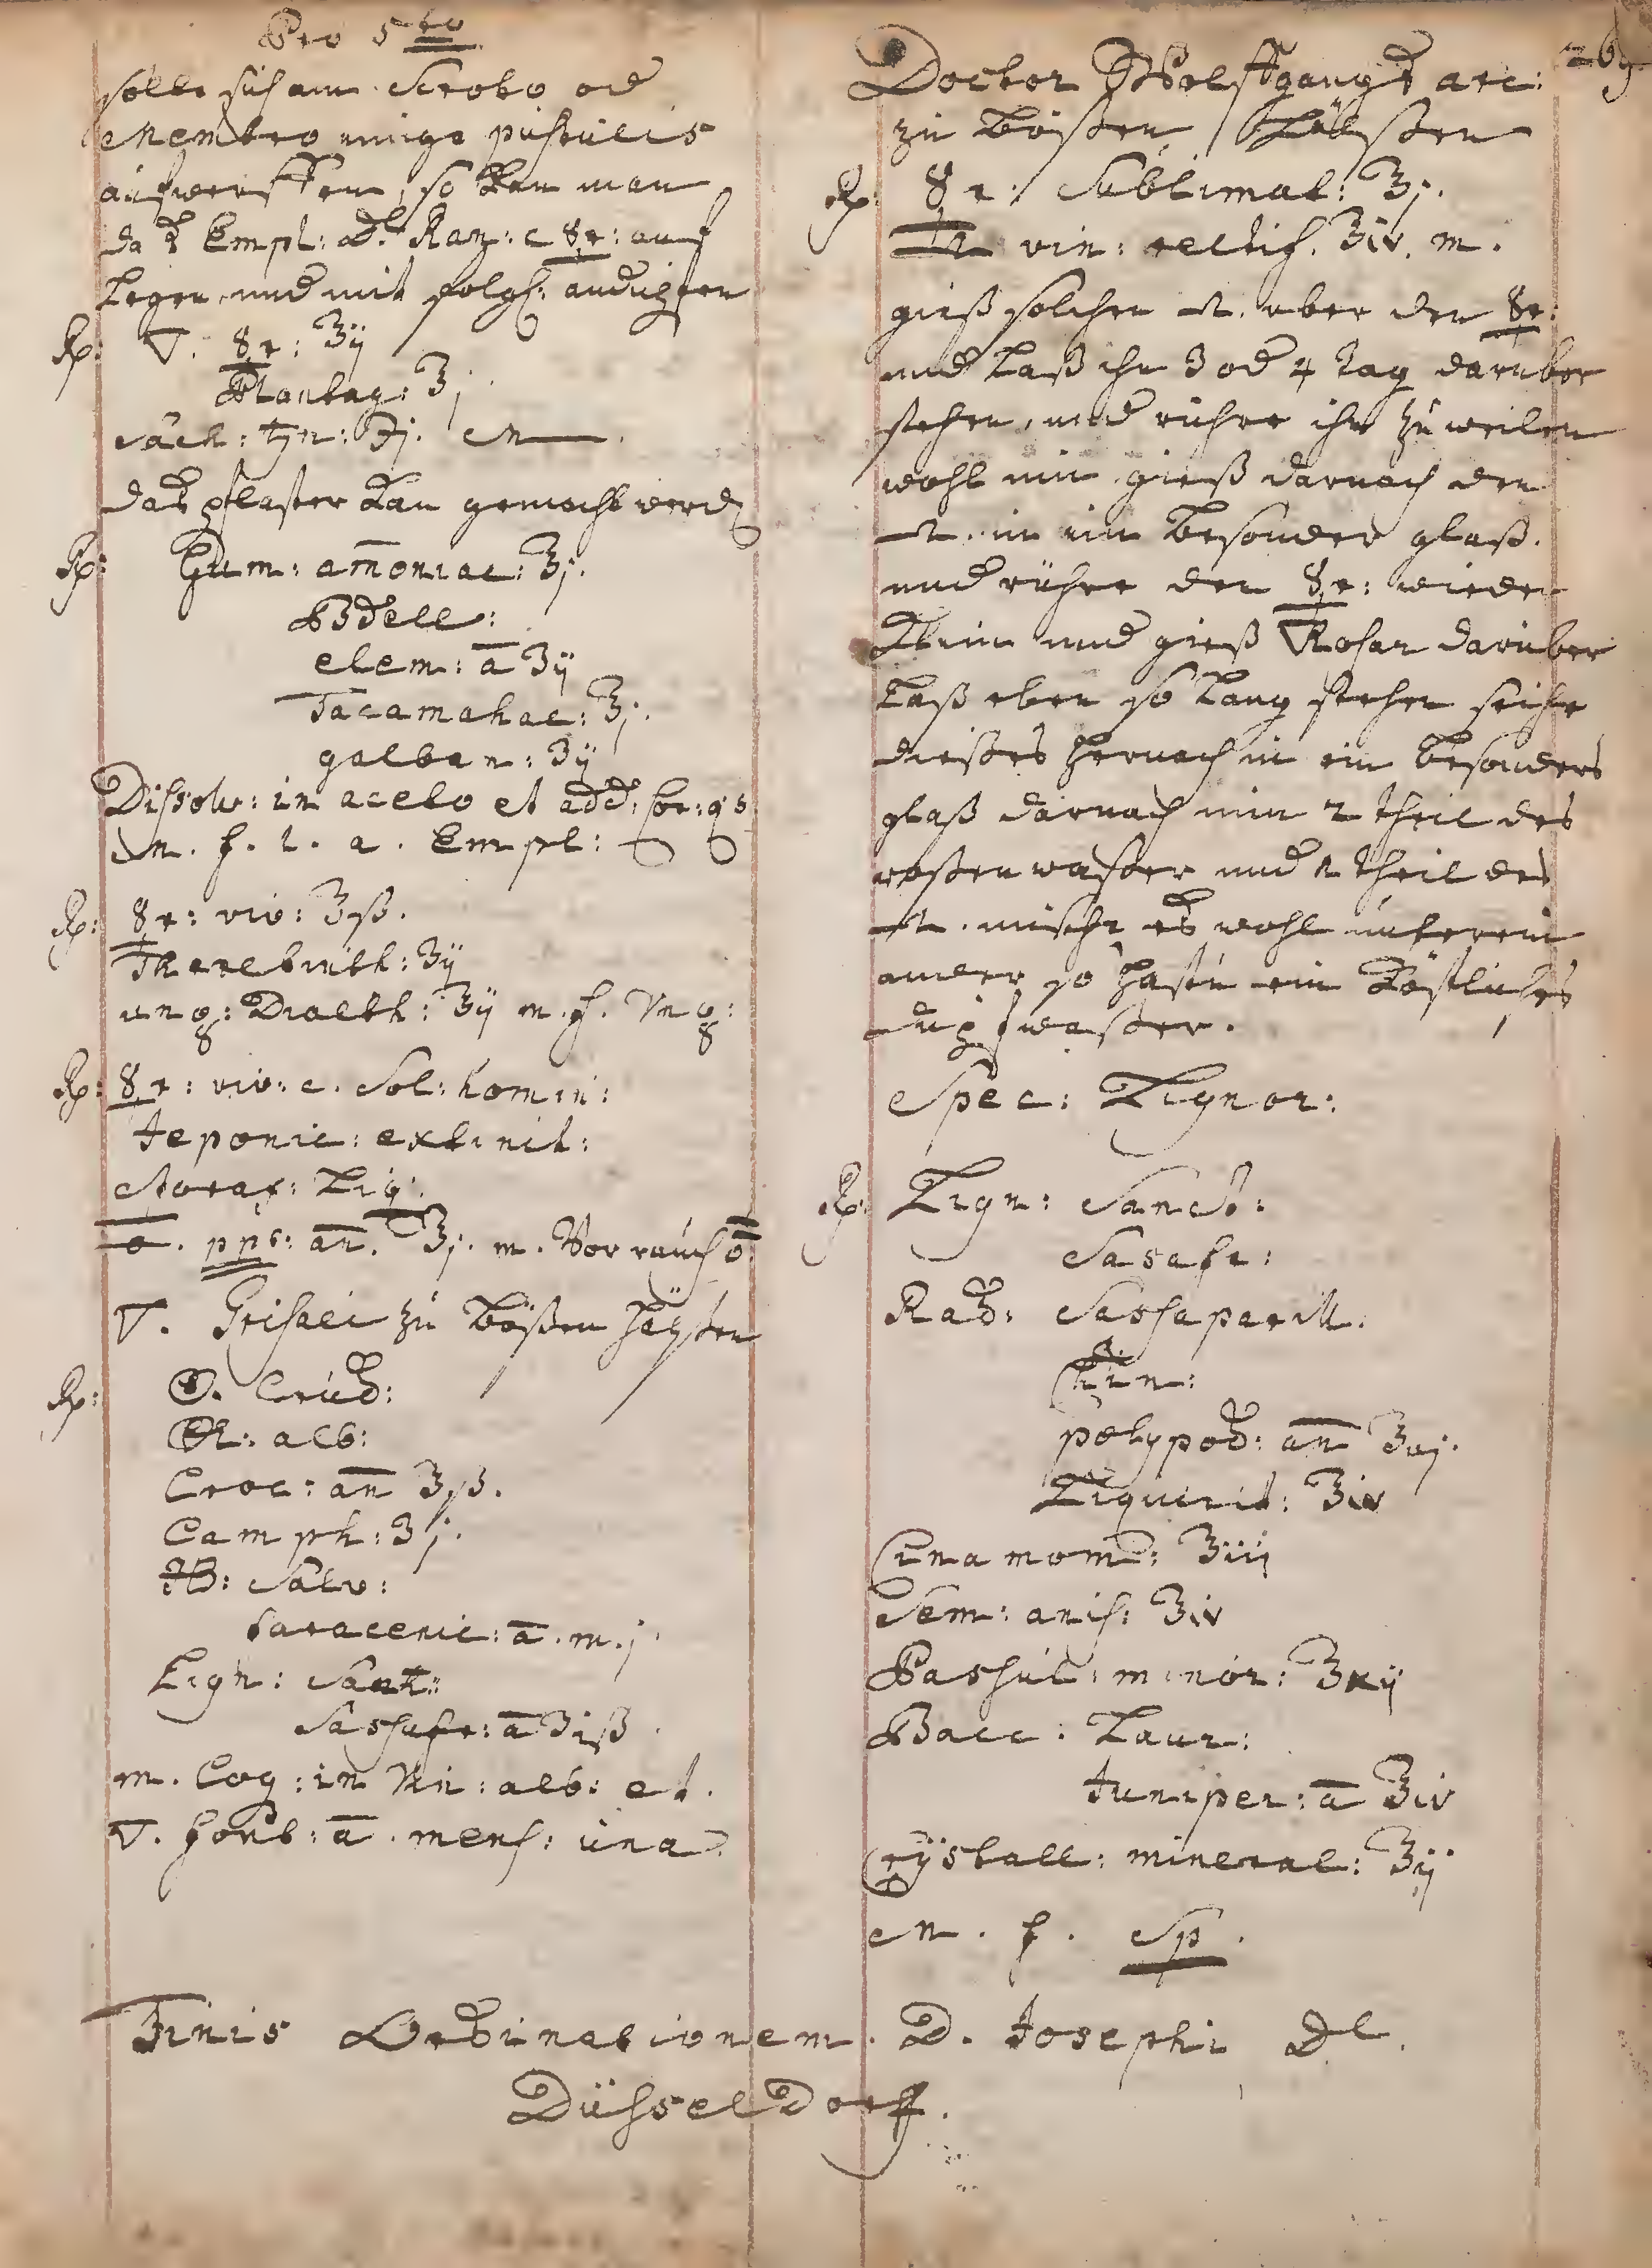 Pro 5to
solte sich am Scroto od
Membro einige pustules
aufwerffen, so kan man
da Empl: d. Ran: c ☿: auf
legen, und mit folgh: andüpfen
Rp: ▽. ☿: ʒij
Plantag: ʒj
Sach: ♄n: ℈j. M
das pflaster kan gemacht werd
Rp: Gum: amoniac: ʒj.
Bdell:
elem: a ʒij
Tacamahac: ʒj.
galban: ʒij
Dissolv: in aceto et add: cer: qs
M. f. l. a. Empl:
Rp: ☿: viv: ʒß.
Therebinth: ʒij
ung: Dialth: ʒij m. f. Ung:
Rp: ☿: viv: c. Sal: homin:
jeponic: extinct:
Storax: Liq:
pps: an. ʒj. m. Vor rauch
▽. Grisaei zu bößen hälßen
Rp: Crud:
alb:
Croc: an ʒß.
Camph: ʒj.
HB: Salv:
saracenic: a. m. j
Lign: Sant:
Sassafr: a ʒiß
m. Coq: in Vin: alb: et.
▽. font: a. mens: una
269
Doctor Wolffgangs arc:
zu bößen hälßen
Rp: ☿: Sublimat: ʒj.
vin: rectif. ʒiv. m.
gieß solchen über den ☿:
und laß ihn 3 od 4 tag darüber
stehen, und rühre ihn zu weilen
wohl um, gieß darnach den
in ein besonder glaß.
und rühre den ☿: wieder
klein und gieß ▽ Rosar darüber
laß eben so lang stehen seihe
dießes hernach in ein besonders
glaß darnach nim 2 theil des
roßenwaßer und 1 theil des
mische es wohl unterein
ander so hastu ein köstliches
düpfwaßer.
Spec: Lignor:
Rp: Lign: Sanct:
Sasafr:
Rad: Sassaparill:
Chin:
polypod: an ʒvj.
Liquirit: ʒiv
Cinamom: ʒiij
Sem: anis: ʒiv
Passul: minor: ʒxij
Bacc: Laur:
Juniper: a ʒiv
Crÿstall: mineral: ʒij
M. f. Sp.
Finis Ordinationem. D. Josephi Dl.
Düsseldorff.